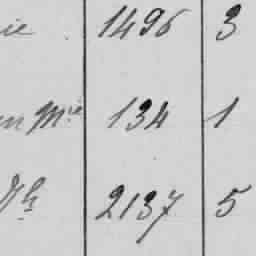 ie 1496 3
en Mie 134 1
Vh 2137 5